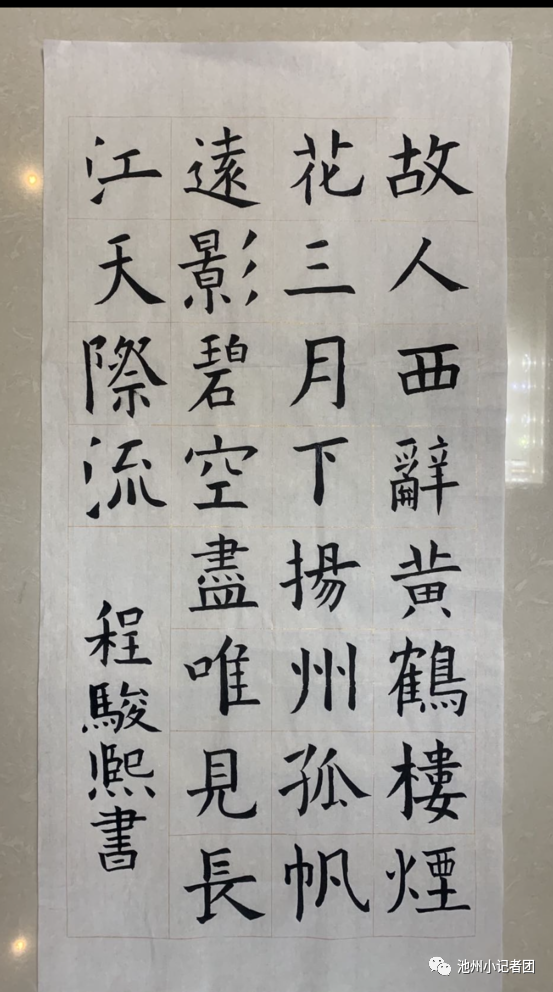 故人西辭黄鶴樓煙
花三月下揚州孤帆
遠影碧空盡唯見長
江天際流
程駿熙書
池州小记者团